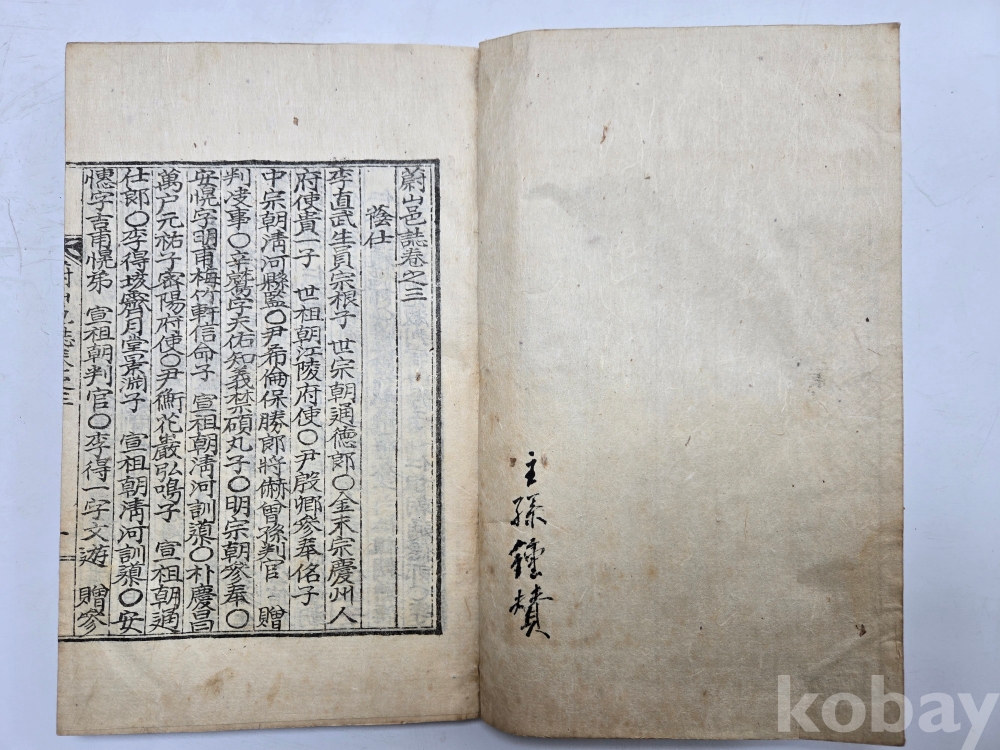 主孫鍾燾
蔚山邑誌卷之三
蔭仕
李直武生員宗根子 世宗朝通德郎〇金末宗慶州人
府使貴一子 世祖朝江陵府使〇尹殷卿參奉佲子
中宗朝淸河縣監〇尹希倫保勝郎將僩曾孫判官 贈
判决事〇辛鷲字天佑知義禁碩丸子〇明宗朝參奉〇
安愰字明甫梅竹軒信命子 宣祖朝淸河訓導〇朴慶昌
萬户元祐子密陽府使〇尹衡花巖弘鳴子 宣祖朝通
仕郎〇李得垓霽月堂景淵子 宣祖朝淸河訓導〇安
憓字吉甫愰弟 宣祖朝判官〇李得一字文遊 贈參
蔚山邑誌卷之三
一
kobay